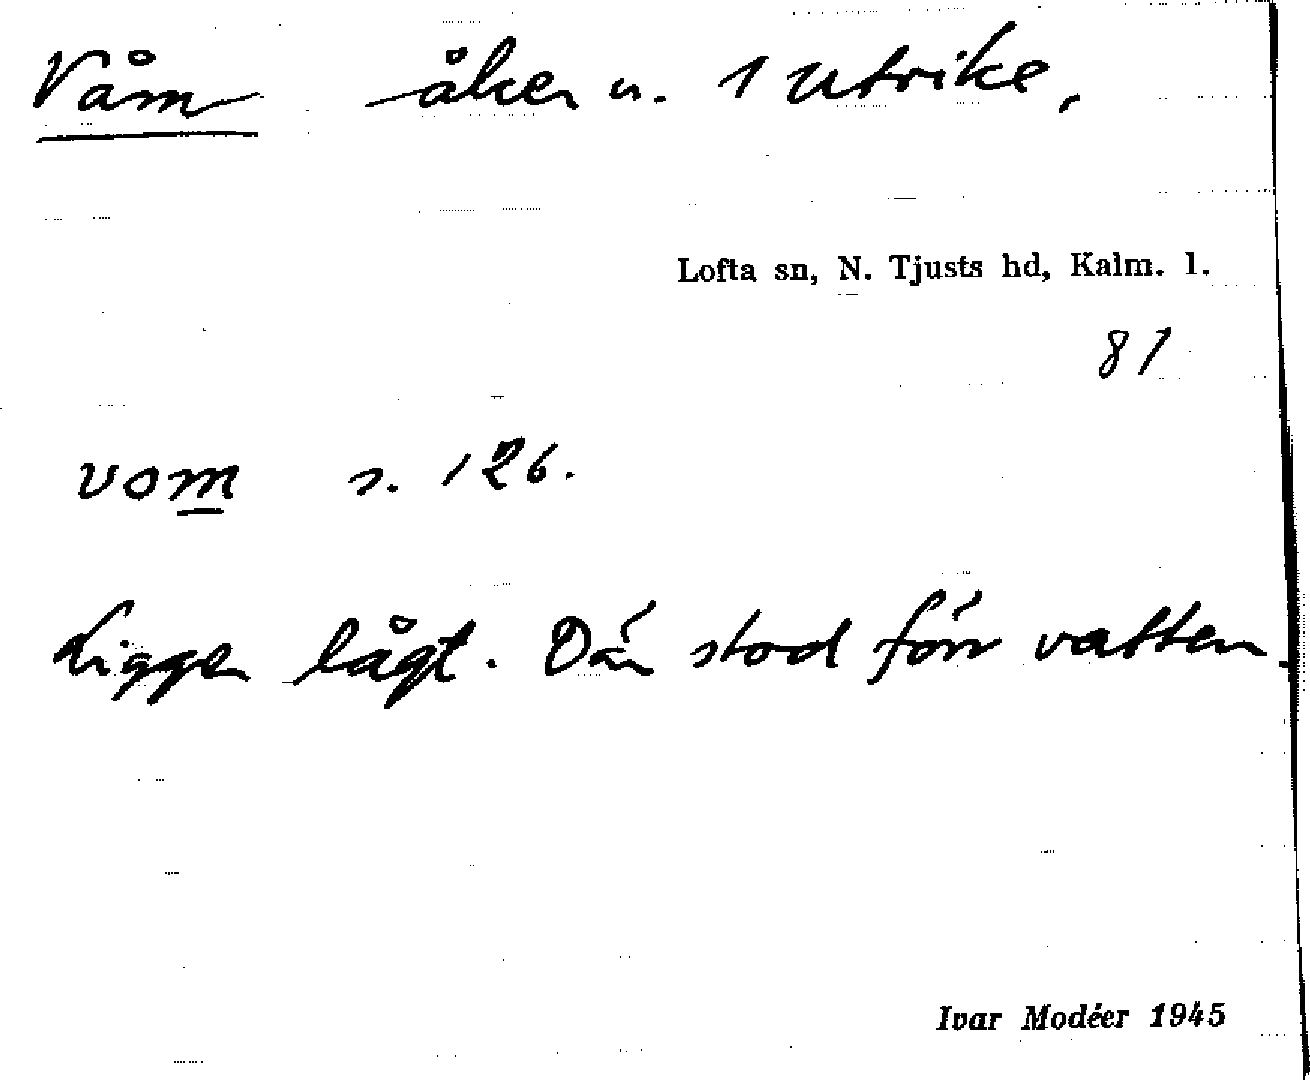 Våm åker u. 1 Utrike,
Lofta sn, N. Tjusts hd, Kalm. l.
81
vom s. 126.
Ligger lågt. Där stod förr vatten.
Ivar Modéer 1945